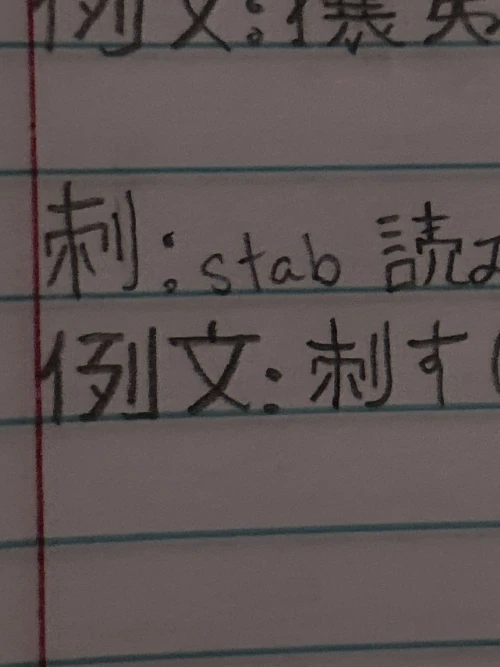 例文:僕
刺:stab 読み
例文:刺す(